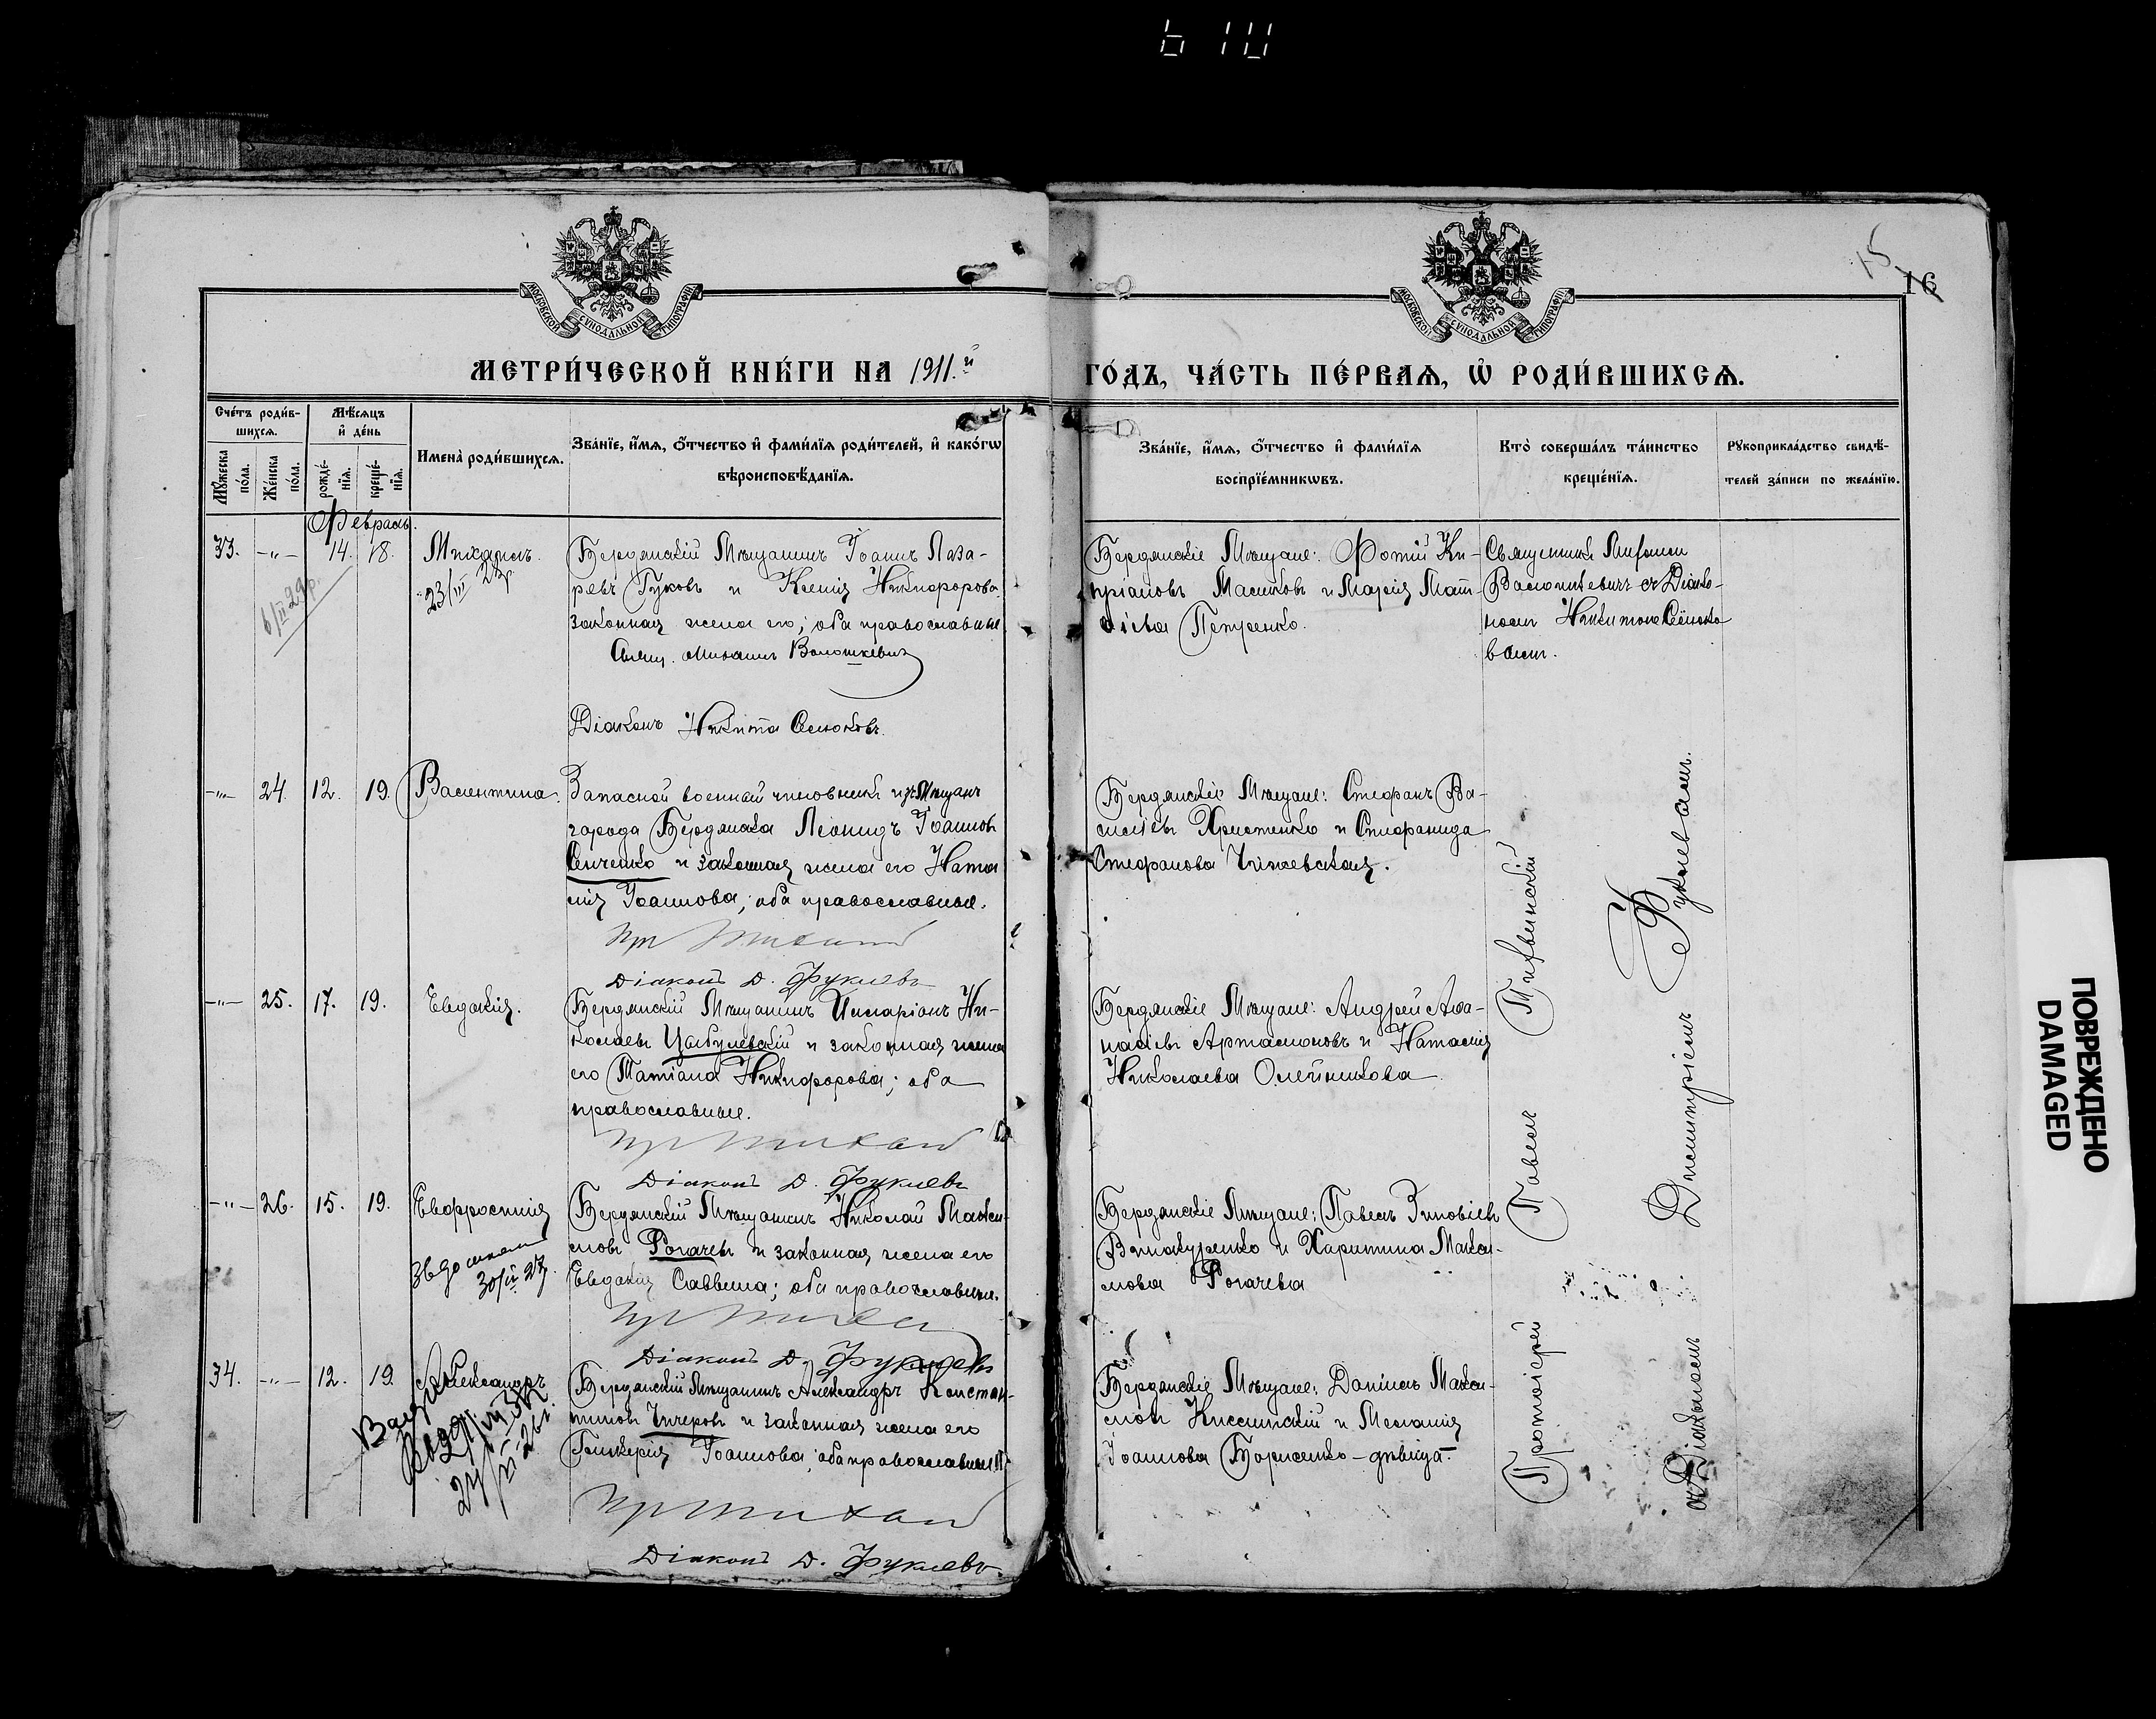 610
МОСКОВСКОЙ СУНОДАЛЬНОЙ ТИПОГРАФІИ
МОСКОВСКОЙ СУНОДАЛЬНОЙ ТИПОГРАФІИ
15
16
МЕТРИ́ЧЕСКОЙ КНИ́ГИ НА 1911.й
ГО́ДЪ, ЧА́СТЬ ПЕ́РВАѦ, Ѽ РОДИ́ВШИХСѦ.
Сче́тъ роди́в-
шихсѧ.
Мꙋ́жеска по́ла.
Же́нска по́ла.
Мѣ́сѧцъ
и҆ де́нь
рожде́-
нїѧ.
креще́-
нїѧ.
Имена̀ роди́вшихсѧ.
Зва́нїе, и҆́мѧ, ѻ҆́тчество и҆ фами́лїѧ роди́телей, и҆ како́гѡ
вѣроисповѣ́данїѧ.
Зва́нїе, и҆́мѧ, ѻ҆́тчество и҆ фами́лїѧ
воспрїе́мникѡвъ.
Кто̀ соверша́лъ та́инство
креще́нїѧ.
Рꙋкоприкла́дство свидѣ́-
телей за́писи по жела́нїю.
Февраль.
33. -„- 14. 18. Михаилъ.
23/III 23р.
6/II 29р.
Бердянскій Мѣщанинъ Іоаннъ Лаза-
ревъ Гуковъ и Ксенія Никифорова
законная жена его; оба православные
Свящ. Митрофанъ Волошкевичъ
Діаконъ Никита Сѣноковъ.
Бердянскіе Мѣщане: Фотій Ки-
пріановъ Масиковъ и Марія Мат-
ѳіева Петренко.
Священникъ
съ Діако-
номъ Никитою Сѣноко-
вымъ.
-„- 24. 12. 19. Валентина.
Запасной военный чиновникъ изъ Мѣщанъ
города Бердянска Леонидъ Іоанновъ
Сенченко и законная жена его Ната
лія Іоаннова; оба православные.
Діаконъ Д. Фукневъ
Бердянскіе Мѣщане: Стефанъ Ва-
силіевъ Христенко и Стефанида
Стефанова Чижевская.
-„- 25. 17. 19. Евдокія.
Бердянскій Мѣщанинъ Иларіонъ Ни-
колаевъ Цыбулевскій и законная жена
его Татіана Никифорова; оба
православные.
Діаконъ Д. Фукневъ
Бердянскіе Мѣщане: Андрей Аѳа-
насіевъ Артамоновъ и Наталія
Николаева Олейникова
-„- 26. 15. 19. Евфросинія
30/IV 27
Бердянскій Мѣщанинъ Николай Макси-
мовъ Рогачевъ и законная жена его
Евдокія Саввина; оба православные.
Діаконъ Д. Фукневъ
Бердянскіе Мѣщане: Павелъ Зиновіевъ
Винокуренко и Харитина Макси-
мова Рогачева
34. -„- 12. 19. Александръ
24/VI-26г.
Бердянскій Мѣщанинъ Александръ Констан-
тиновъ Чичеровъ и законная жена его
Гликерія Іоаннова; оба православные
Діаконъ Д. Фукневъ.
Бердянскіе Мѣщане: Даніилъ Макси-
мовъ и Меланія
Іоаннова Борисенко - дѣвица.
Протоіерей Павелъ
съ Діакономъ Димитріемъ Фукневымъ.
ПОВРЕЖДЕНО
DAMAGED